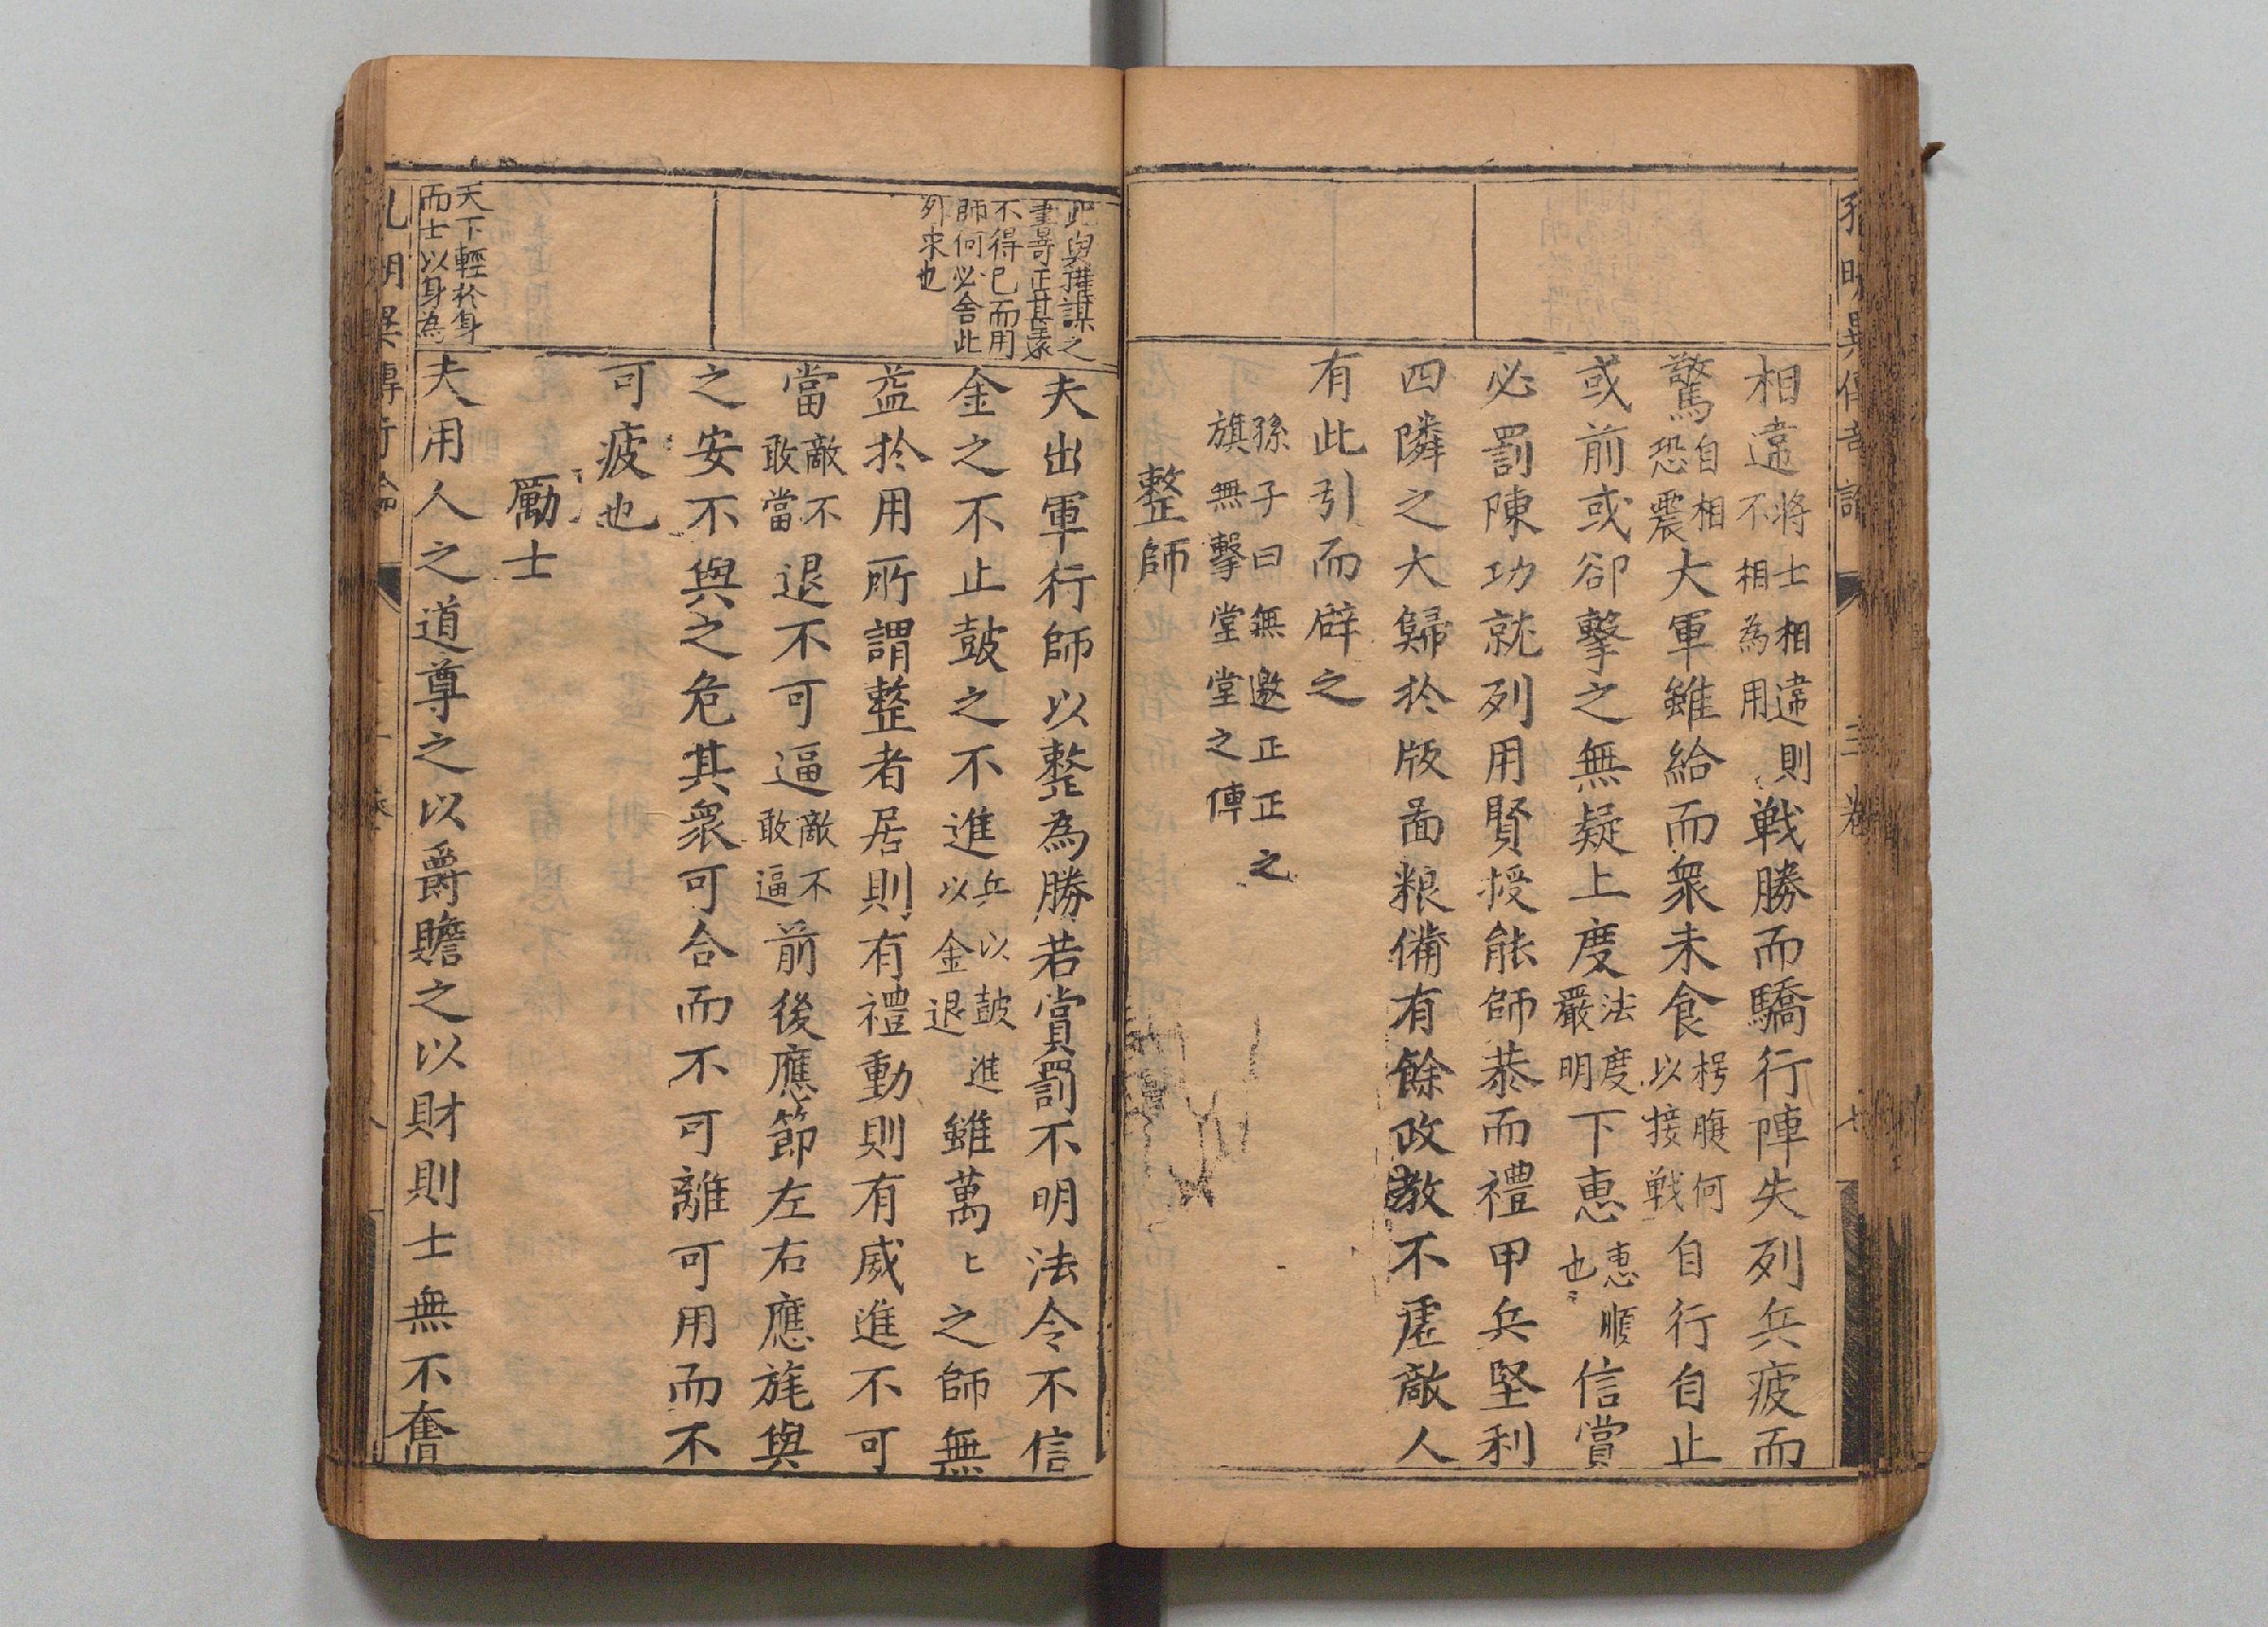 孔明異傳奇論 三卷 七
相違將士相違則不相為用戦勝而驕行陣失列兵疲而
驚自相恐震大軍雖給而衆未食枵腹何以接戦自行自止
或前或卻擊之無疑上度法度嚴明下恵恵順也信賞
必罰陳功就列用賢授能師恭而禮甲兵堅利
四隣之大歸於版啚粮備有餘政教不虗敵人
有此引而辟之
孫子曰無邀正正之
旗無擊堂堂之傳
整師
此與權謀之
書等正甚遠
不得已而用
師何必舍此
外求也
夫出軍行師以整為勝若賞罰不明法令不信
金之不止鼓之不進兵以鼓進以金退雖萬〻之師無
益於用所謂整者居則有禮動則有威進不可
當敵不敢當退不可逼敵不敢逼前後應節左右應旄與
之安不與之危其衆可合而不可離可用而不
可疲也
勵士
天下輕於身
而士以身為
夫用人之道尊之以爵贍之以財則士無不奮
孔明異傳奇論